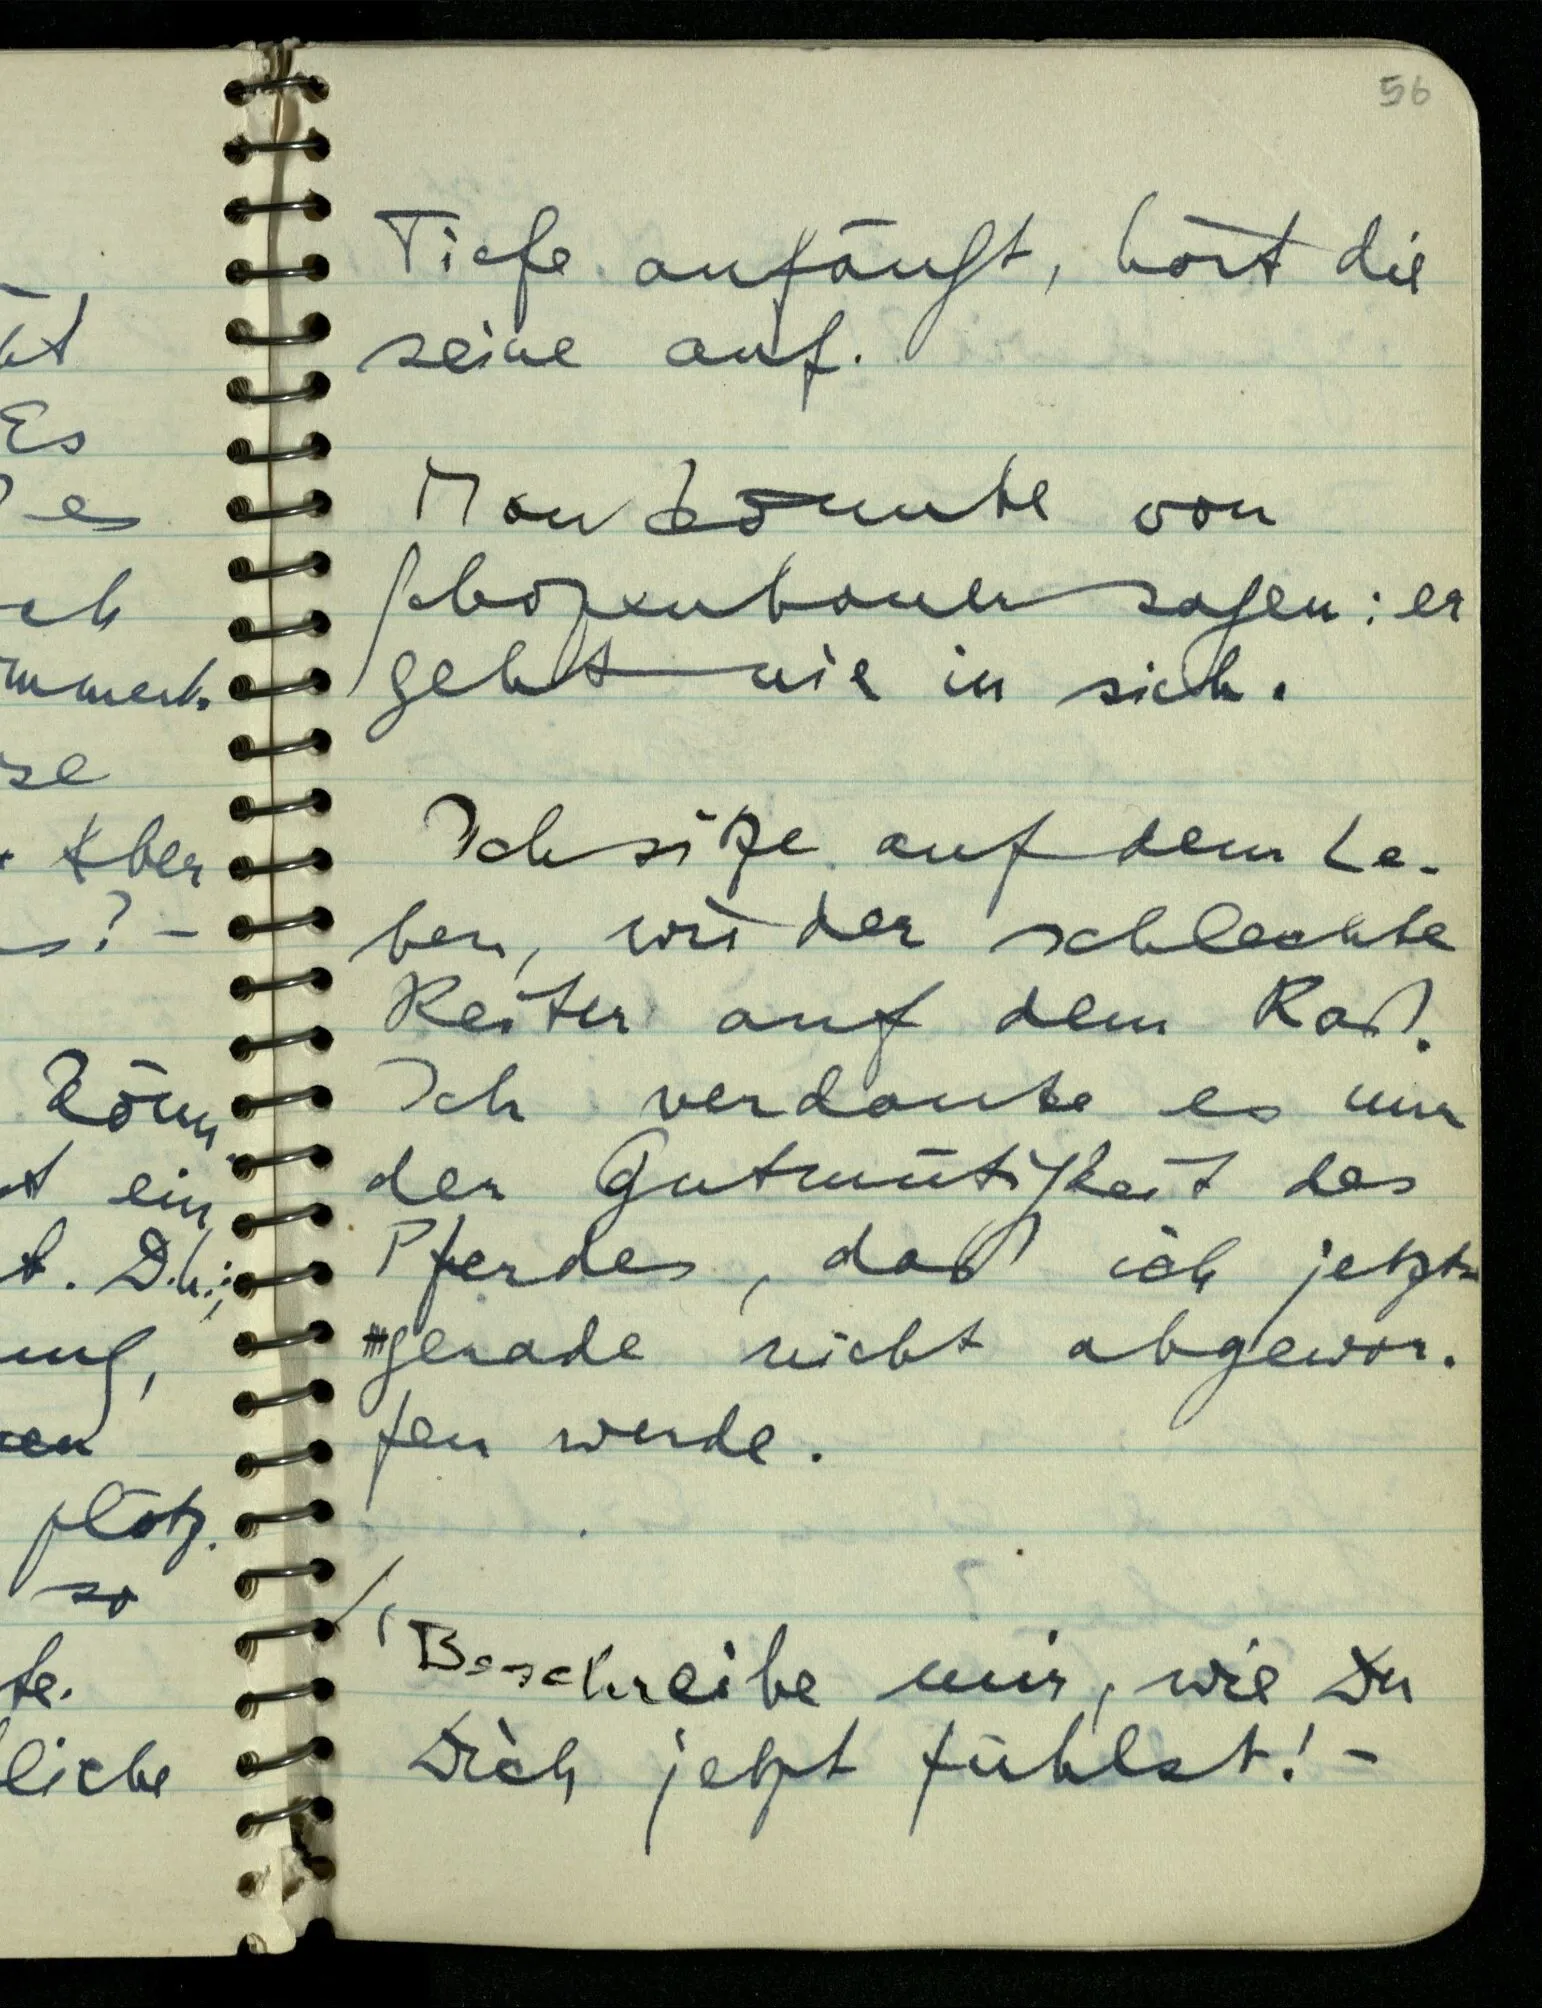 56
Tiefe anfängt, hört die
seine auf.
Man könnte von
Schopenhauer sagen: er
geht nie in sich.
Ich sitze auf dem Le-
ben, wie der schlechte
Reiter auf dem Roß.
Ich verdanke es nur
der Gutmütigkeit des
Pferdes, daß ich jetzt
gerade nicht abgewor-
fen werde.
/ Beschreibe mir, wie Du
Dich jetzt fühlst! –
Es
es
ch
mmerk.
se
. Aber
s? –
Könn
t ein
t. D.h.;
ung,
en
plötz.
so
te.
liche